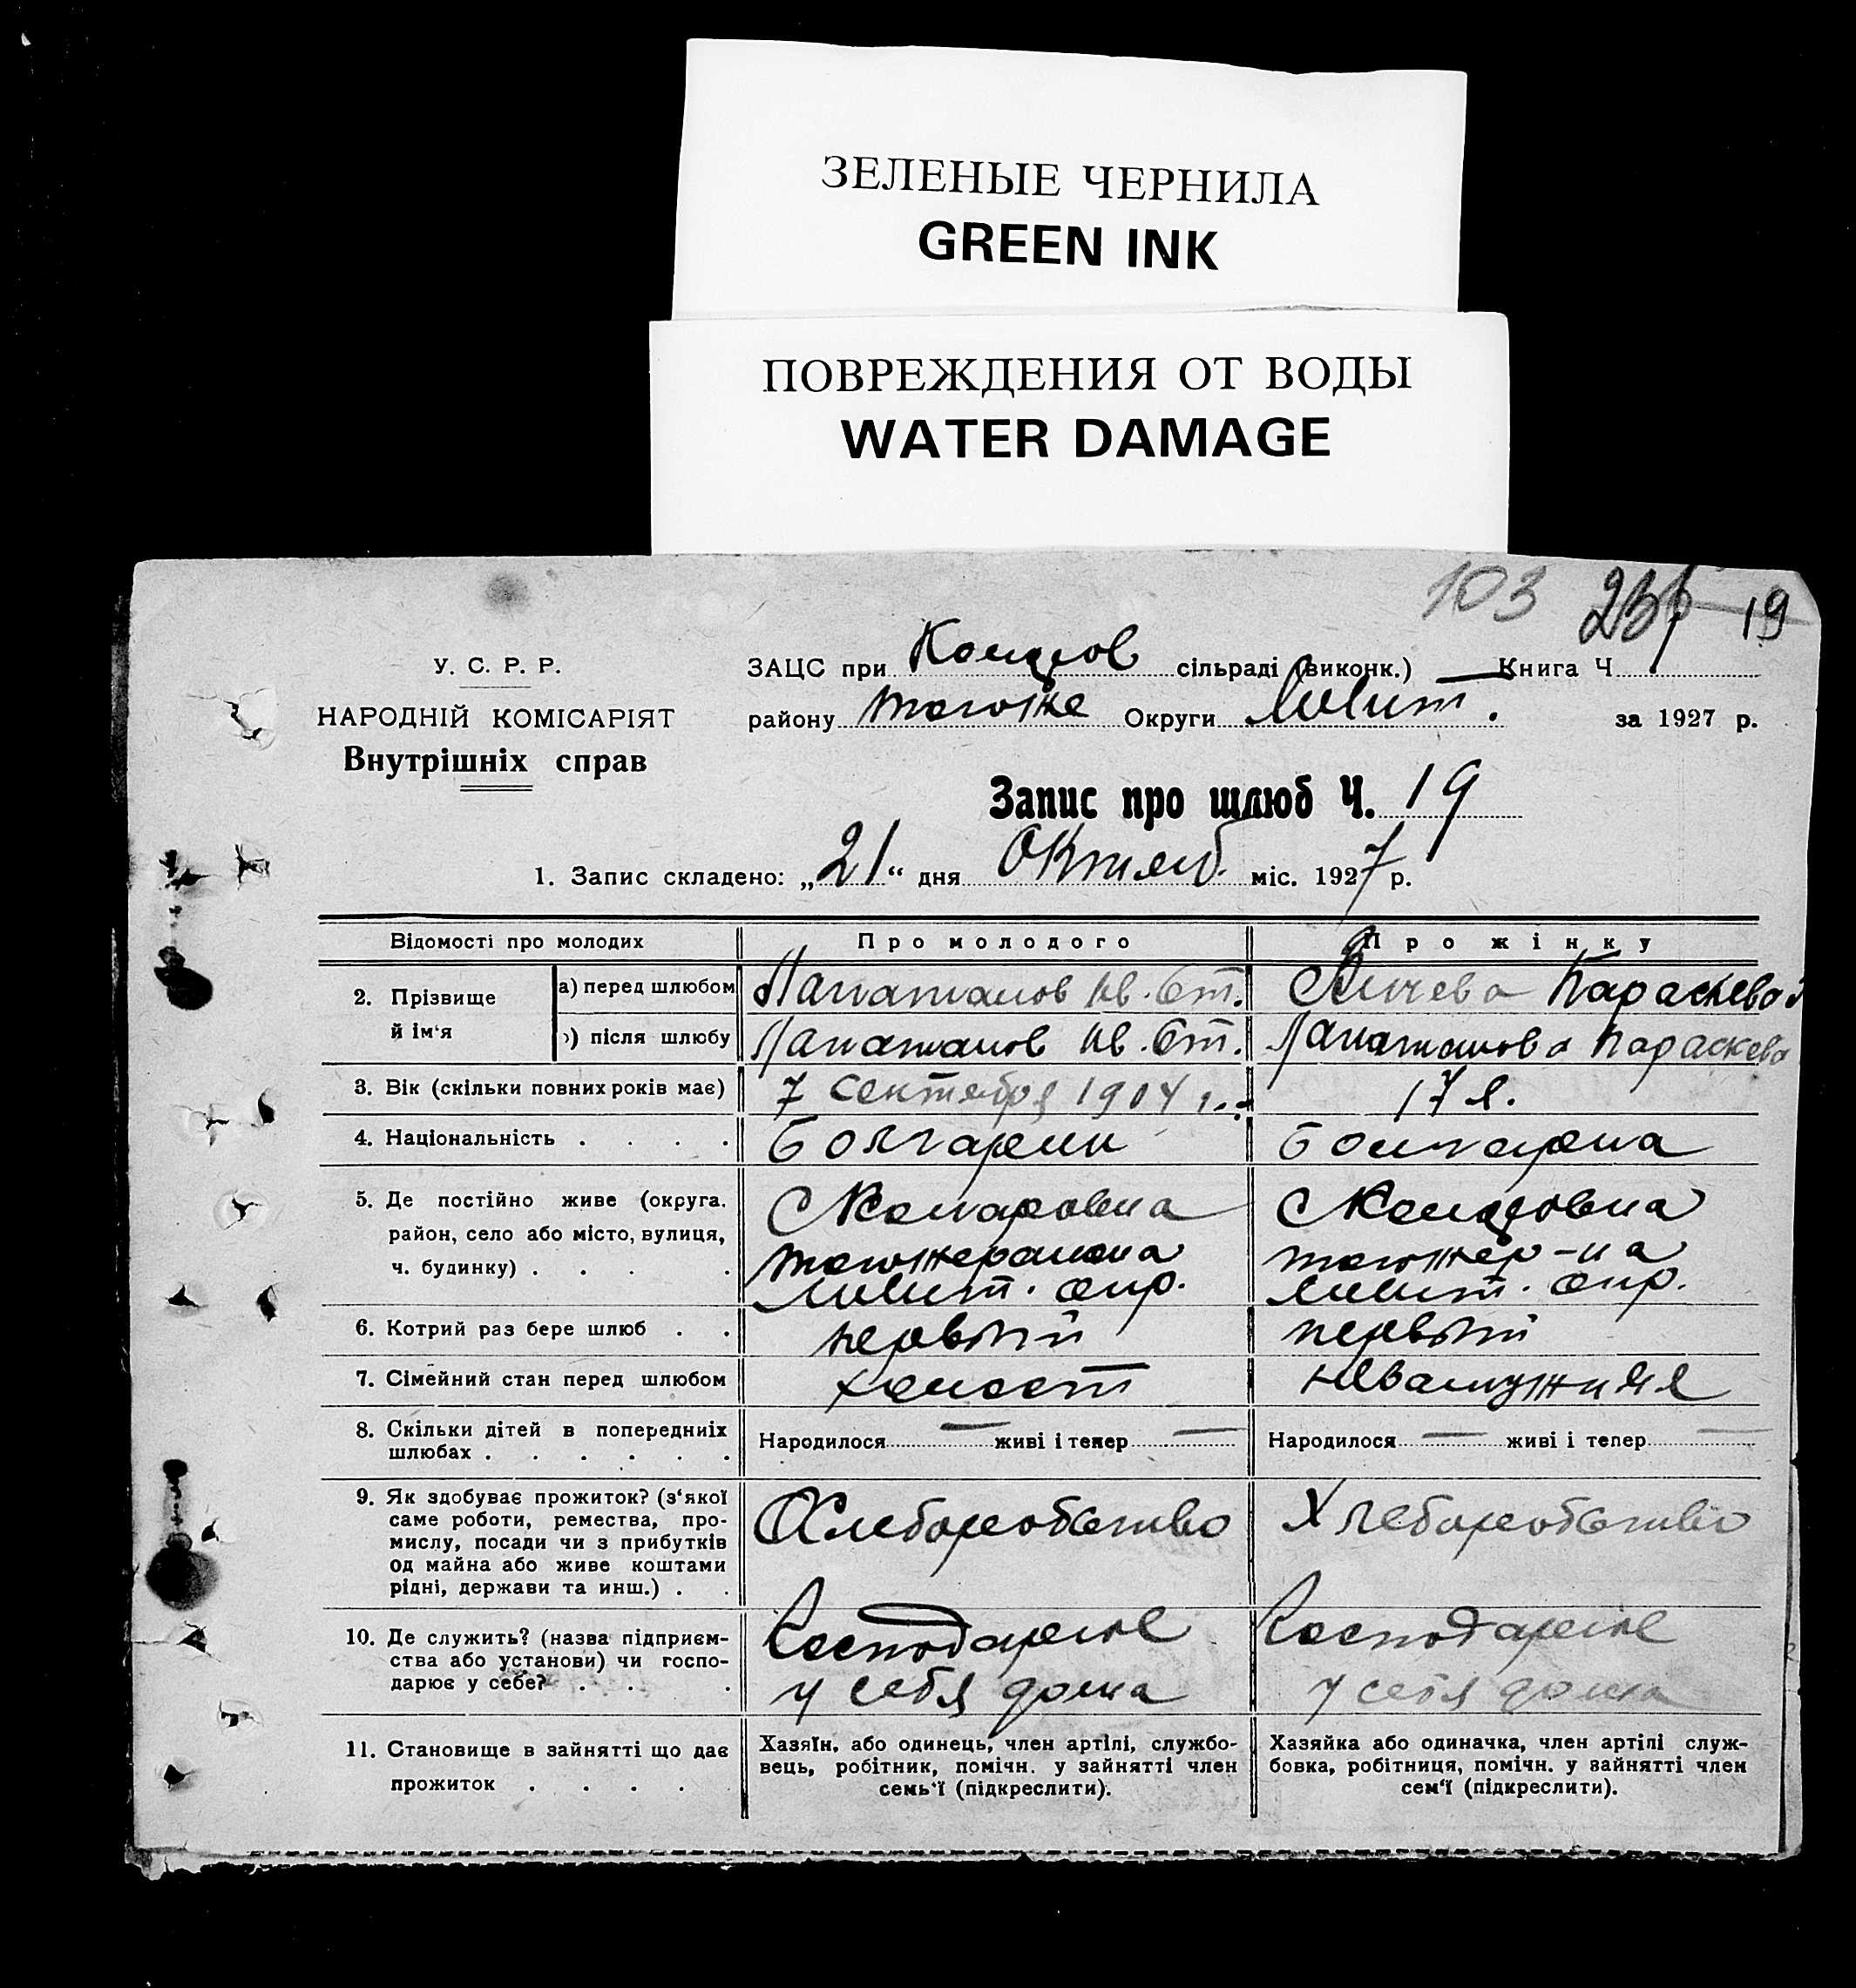 ЗЕЛЕНЫЕ ЧЕРНИЛА
GREEN INK
ПОВРЕЖДЕНИЯ ОТ ВОДЫ
WATER DAMAGE
103 19
У. С. Р. Р.
НАРОДНІЙ КОМІСАРІЯТ
Внутрішніх справ
ЗАЦС при сільраді (виконк.) Книга Ч
району Округи за 1927 р.
Запис про шлюб Ч. 19
1. Запис складено: „21“ дня Октяб. міс. 1927 р.
Відомості про молодих
Про молодого
Про жінку
2. Прізвище й ім‘я
а) перед шлюбом
Ив. Ст.
Параскева
) після шлюбу
Ив. Ст.
Параскева
3. Вік (скільки повних років має)
7 сентября 1904 г.
17 л.
4. Національність . . . .
Болгарин
Болгарка
5. Де постійно живе (округа.
район, село або місто, вулиця,
ч. будинку) . . . .
окр.
окр.
6. Котрий раз бере шлюб . .
первый
первый
7. Сімейний стан перед шлюбом
холост
8. Скільки дітей в попередніх
шлюбах . . . . . .
Народилося — живі і тепер —
Народилося — живі і тепер —
9. Як здобуває прожиток? (з‘якої
саме роботи, ремества, про-
мислу, посади чи з прибутків
од майна або живе коштами
рідні, держави та инш.) . .
Хлеборобство
Хлеборобство
10. Де служить? (назва підприєм-
ства або установи) чи госпо-
дарює у себе? . . .
у себя дома
у себя дома
11. Становище в зайнятті що дає
прожиток . . . .
Хазяїн, або одинець, член артілі, службо-
вець, робітник, помічн. у зайнятті член
семь‘ї (підкреслити).
Хазяйка або одиначка, член артілі служ-
бовка, робітниця, помічн. у зайнятті член
сем‘ї (підкреслити).